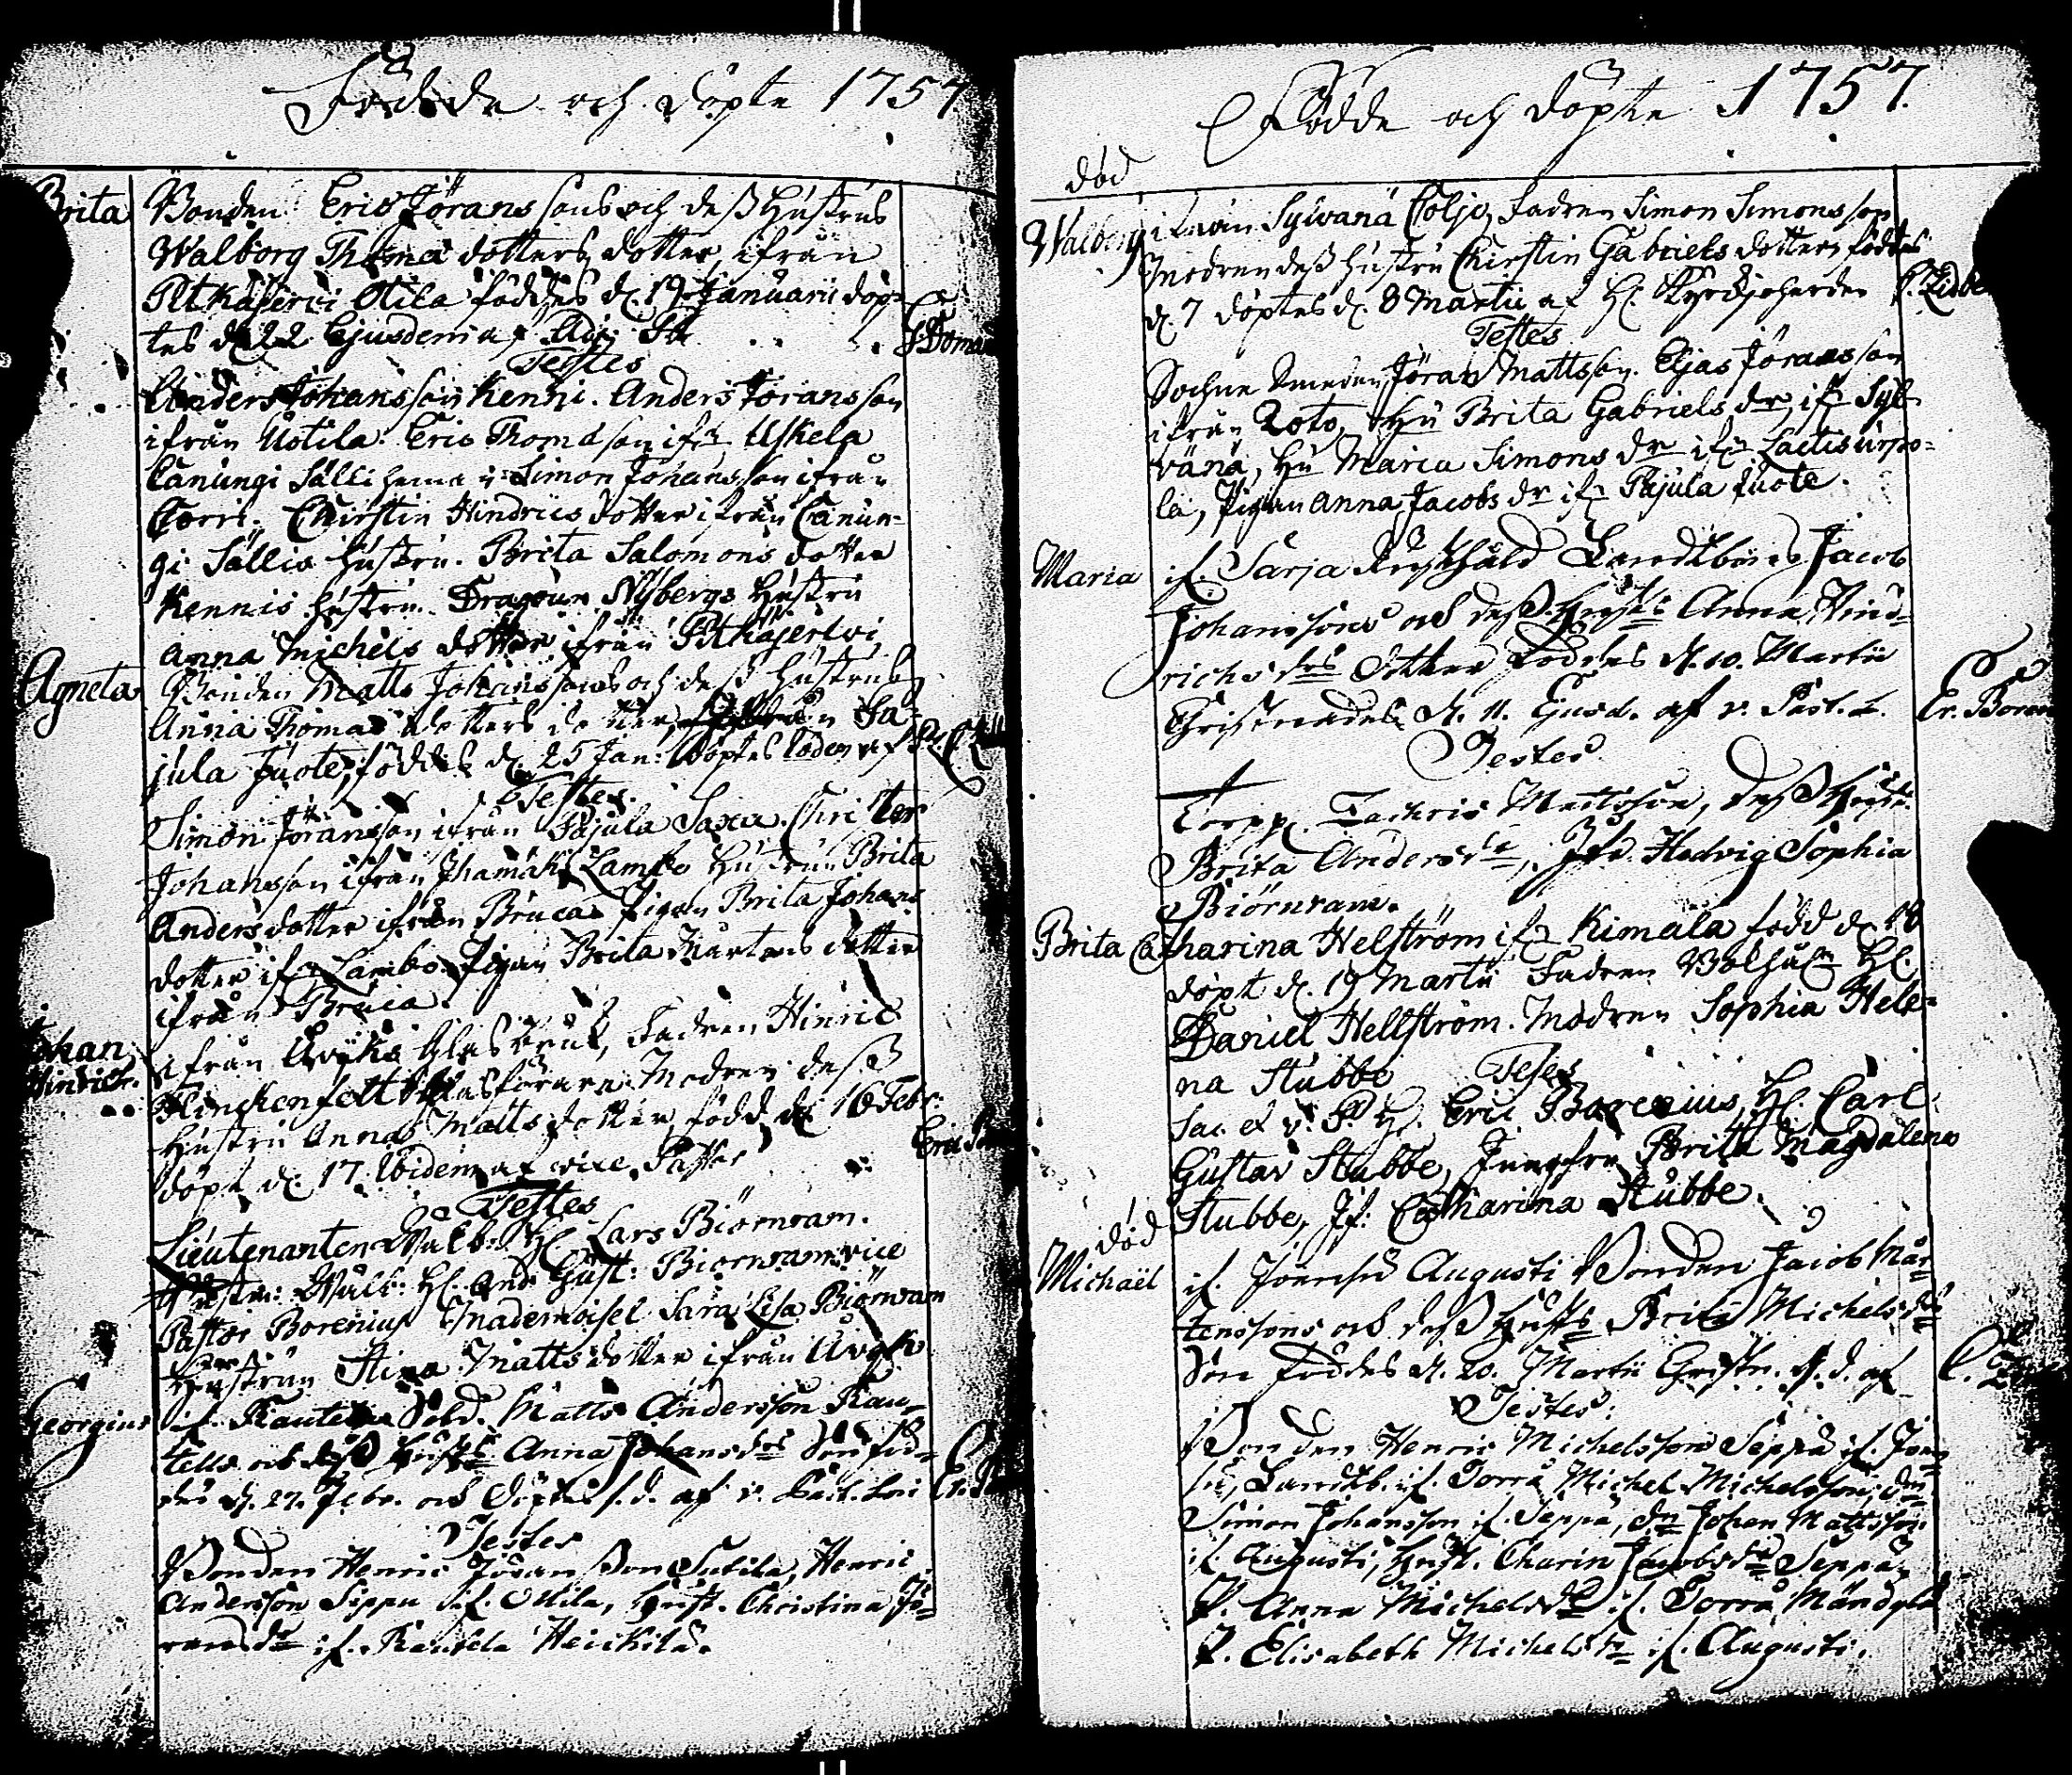 Födde och döpte 1757
Brita Bonden Eric Jörans sons och deß Hustrus
Walborg Thomæ dotters dotter, ifrån
Pitkäjerfvi Otila föddes d. 19 Januarii döp-
tes d. 22 Ejusdem af Adj.
Testes
Anders Johansson Kenni. Anders Joransson
ifrån Uotila. Eric Thomasson ifrn Uskela
Canungi Sälli hema v: Simon Johansson ifrån
Torri. Chirstin Hindrics dotter ifrån Canun-
gi Sällis hustru. Brita Salomons dotter
Kennis hustru. Dragoun Nybergs Hustru
Anna Michels dotter ifrån Pitkäjerfvi
Agneta Bonden Matts Johanssons och deß hustrus
Anna Thomas dotters dotter, ifrån Pa-
jula Juote, föddes d. 25 Jan: döptes Eodem af
Testes.
Simon Joransson ifrån Pajula Saxa. Christer
Johansson ifrån Jhamäki Lambo Hustrun Brita
Anders dotter ifrån Bruca Pigan Brita Johans
dotter ifn Lambo. Pigan Brita Mårtens dotter
ifrån Bruca.
Johan Hinric. ifrån Åviks Glasbruk, Fadren Hinric
Klinckenfelt Glasförare Modren deß
Hustru Anna Matts dotter, född d. 16 Febr:
döpt d. 17. Ibidem af vice Pastor Eric
Testes
Lieutenanten Wälb: H. Lars Biörnram.
Wälb: H. And: Gust: Biörnram vice
Pastor Borenius Mademoisel Sara Lisa Biörnram
Hustrun Stina Matts dotter ifrån Åvik
Georgius if. Rautela Sold. Matts Andersson Rau-
tells och deß Hust:s Anna Johansdrs Son föd-
des d. 27. Febr. och döptes s. d. af v. Past. Loci
Testes
Bonden Henric Jöransson Sutila, Henric
Andersson Sippu if. Otila, Hust. Christina Jö-
ransdr if. Rautela Heickilä.
Födde och döpte 1757.
död
Walborg ifrån Sylvänä Coljo, Fadren Simon Simonsson
Modren deß hustru Chirstin Gabriels dotter, föddes
d. 7 döptes d. 8 Martii af H. Kyrckjoherden
Testes
Sochne Smeden Jöran Mattsson. Eljas Jöransson
ifrån Roto, Hu Brita Gabriels dr, ifn Syl-
vänä, Hu Maria Simons dr ifn Lautisurpo-
la, Pigan Anna Jacobs dr ifn Pajula Juote.
Maria if. Sarja Rusthåld Landtbons Jacob
Johanssons och deß Hust:s Anna Hind-
richsdrs dotter föddes d. 10. Martii
Christnades d. 11. Ejusd. af v. Past. L. Er. Boren
Testes
Torpp. Zachris Mattsson, deß Hust.
Brita Andersdr, Jfr. Hedvig Sophia
Biörnram.
Brita Catharina Helström ifn Kimala född d. 18
döpt d. 19 Martii Fadren H.
Daniel Hellström. Modren Sophia Hele-
na Stubbe Testes
Sac. et v. P. H. Eric Borenius, H. Carl
Gustav Stubbe, Jungfru Brita Magdalena
Stubbe, Jf: Catharina Stubbe.
död
Michaël if. Joensu Augusti Bonden Jacob Mår-
tenssons och deß Hust:s Brita Michelsdrs
Son föddes d. 20. Martii Christn. s. d. af
Testes:
Bonden Henric Michelsson Seppä if. Joen-
su, Landtb. if. Torrå Michel Michelsson, dn
Simon Johansson if. Seppä, dn Johan Mattsson
if. Augusti, Hust. Charin Jacobsdr Seppä,
P. Anna Michelsdr if. Torrå Mändylä
P. Elisabeth Michelsdr if. Augusti.